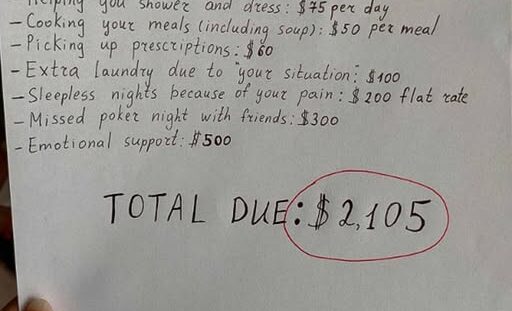 Helping you shower and dress: $75 per day
- Cooking your meals (including soup): $50 per meal
- Picking up prescriptions: $60
- Extra laundry due to "your situation": $100
- Sleepless nights because of your pain: $200 flat rate
- Missed poker night with friends: $300
- Emotional support: $500
TOTAL DUE: $2,105